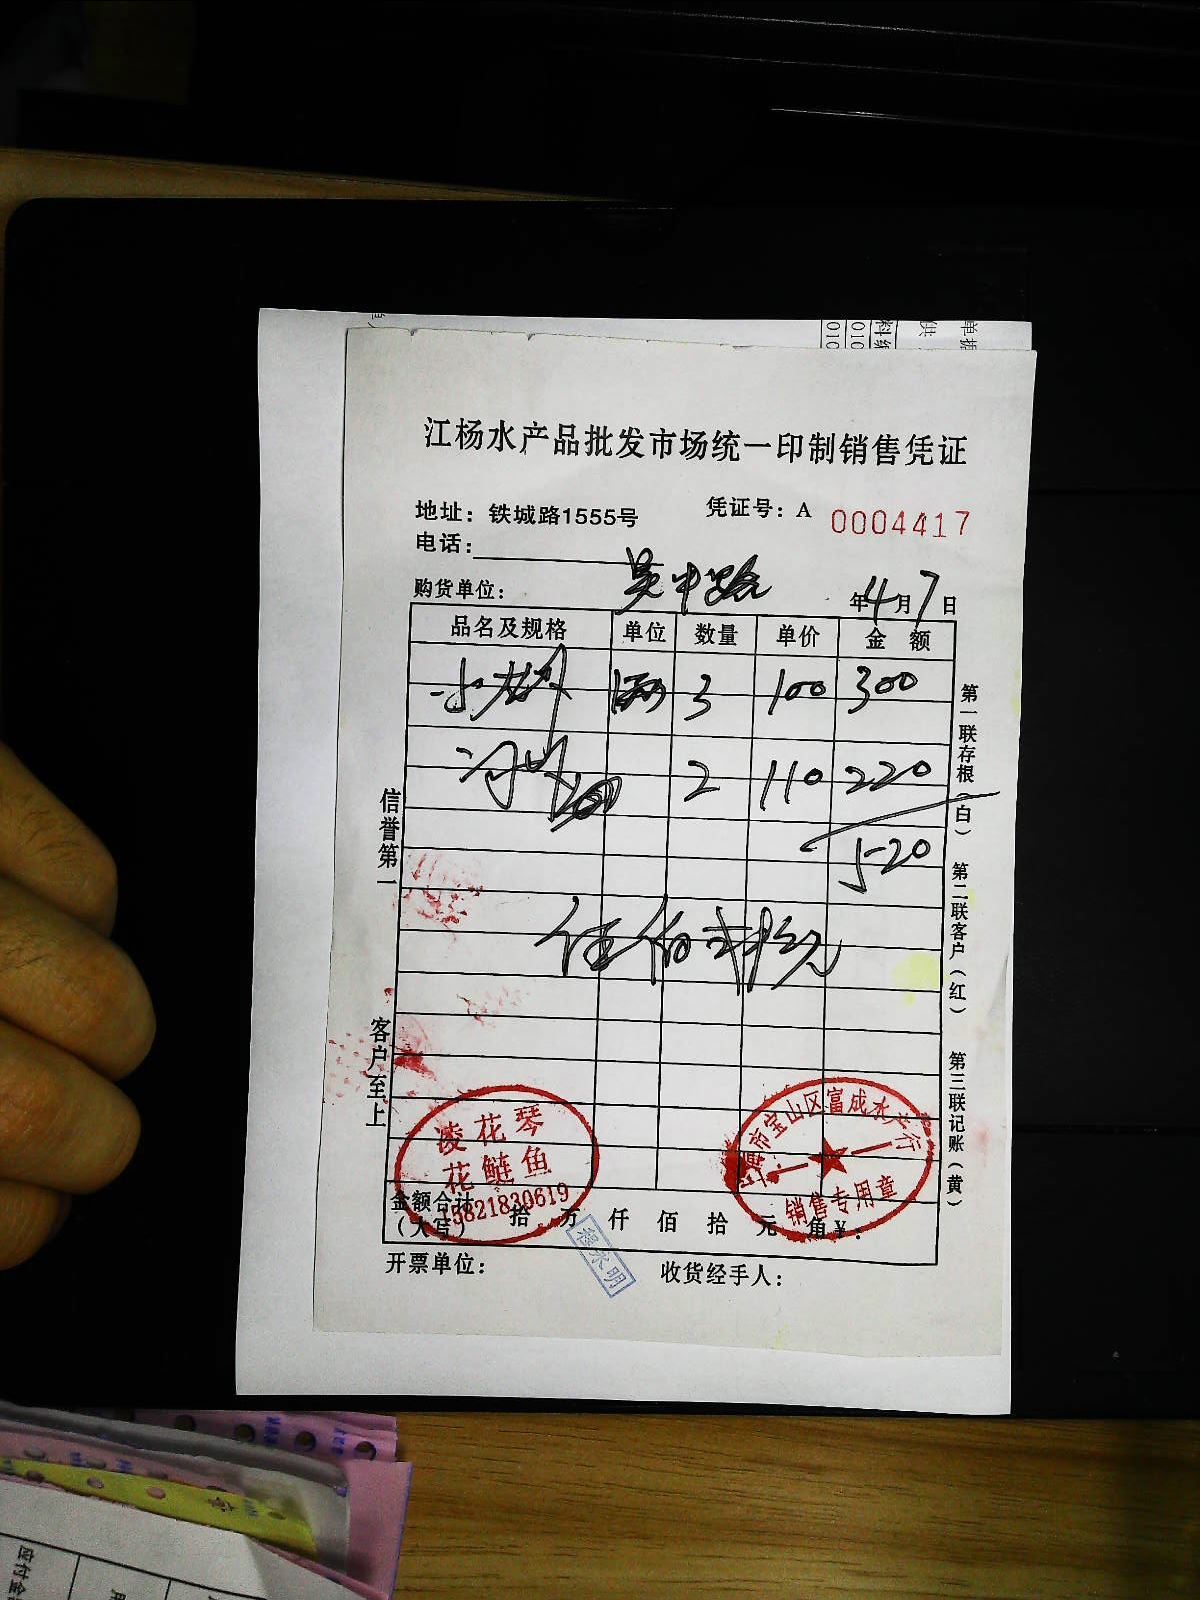 江杨水产品批发市场统一印制销售凭证
地址：铁城路1555号 凭证号：A 0004417
电话：
购货单位： 吴中路 年4月7日
品名及规格 单位 数量 单价 金额
小龙虾 3 100 300
2 110 220
520
伍佰贰拾元
信誉第一
客户至上
第一联存根（白）
第二联客户（红）
第三联记账（黄）
凌花琴
花鲢鱼
15821830619
上海市宝山区富成水产行
销售专用章
金额合计（大写） 拾万仟佰拾元角¥：
程永明
开票单位： 收货经手人：
应付金